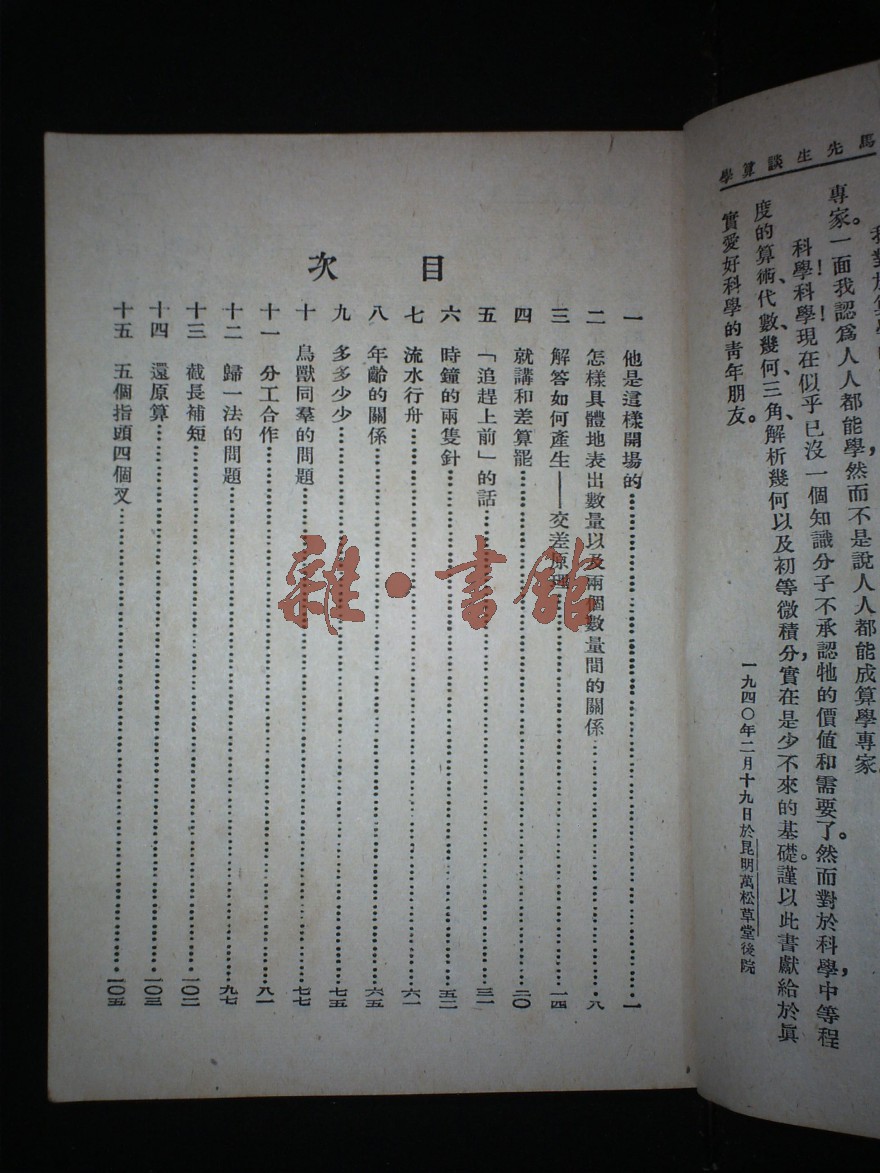 馬先生談算學
專家。一面我認爲人人都能學，然而不是說人人都能成算學專家。
科學！科學！現在似乎已沒一個知識分子不承認牠的價值和需要了。然而對於科學，中等程
度的算術、代數、幾何、三角、解析幾何以及初等微積分，實在是少不來的基礎。謹以此書獻給於眞
實愛好科學的青年朋友。
一九四〇年二月十九日於昆明萬松草堂後院
目次
一 他是這樣開場的……一
二 怎樣具體地表出數量以及兩個數量間的關係……八
三 解答如何產生——交差原理……一四
四 就講和差算罷……二〇
五 「追趕上前」的話……三一
六 時鐘的兩隻針……五二
七 流水行舟……六一
八 年齡的關係……六五
九 多多少少……七五
十 鳥獸同羣的問題……七七
十一 分工合作……八一
十二 歸一法的問題……九七
十三 截長補短……一〇二
十四 還原算……一〇三
十五 五個指頭四個叉……一〇五
雜·書館